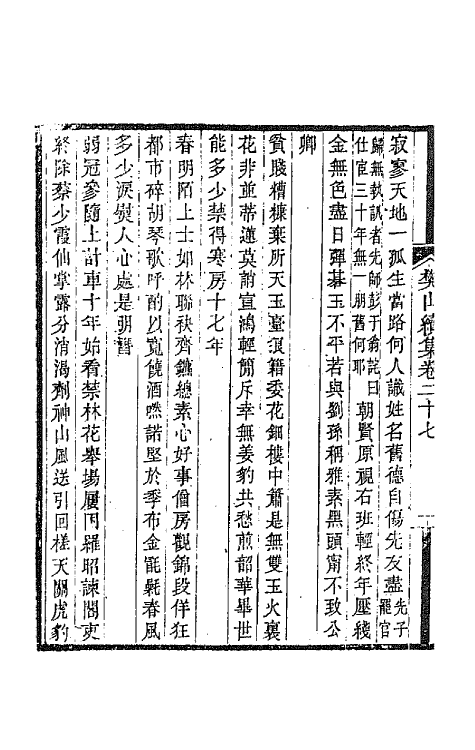 寂寥天地一孤生當路何人識姓名舊德自傷先友盡先子罷官
歸無執訊者先師彭于翁詫曰仕宦三十年無一朋舊何耶朝賢原視右班輕終年壓綫
金無色盡日彈棊玉不平若與劉孫稱雅素黑頭甯不致公
卿
貧賤糟糠棄所天玉臺狼籍委花鈿樓中簫是無雙玉火裏
花非並蒂蓮莫誚宣鴻輕簡斥幸無姜豹共愁煎韶華畢世
能多少禁得寒房十七年
春明陌上士如林聯袂齊鑣總素心好事僧房觀錦段佯狂
都市碎胡琴歌呼酌以寬饒酒然諾堅於季布金寵嬖春風
多少淚熨人心處是朋簪
弱冠參隨上計車十年始看禁林花舉場屢因羅昭諫閣吏
終除蔡少霞仙掌露分消渴劑神山風送引回槎天關虎豹
樊山續集卷二十七